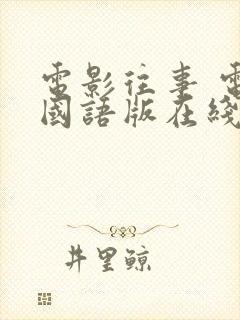 電影往事 電
國語版在綫
井里鯨